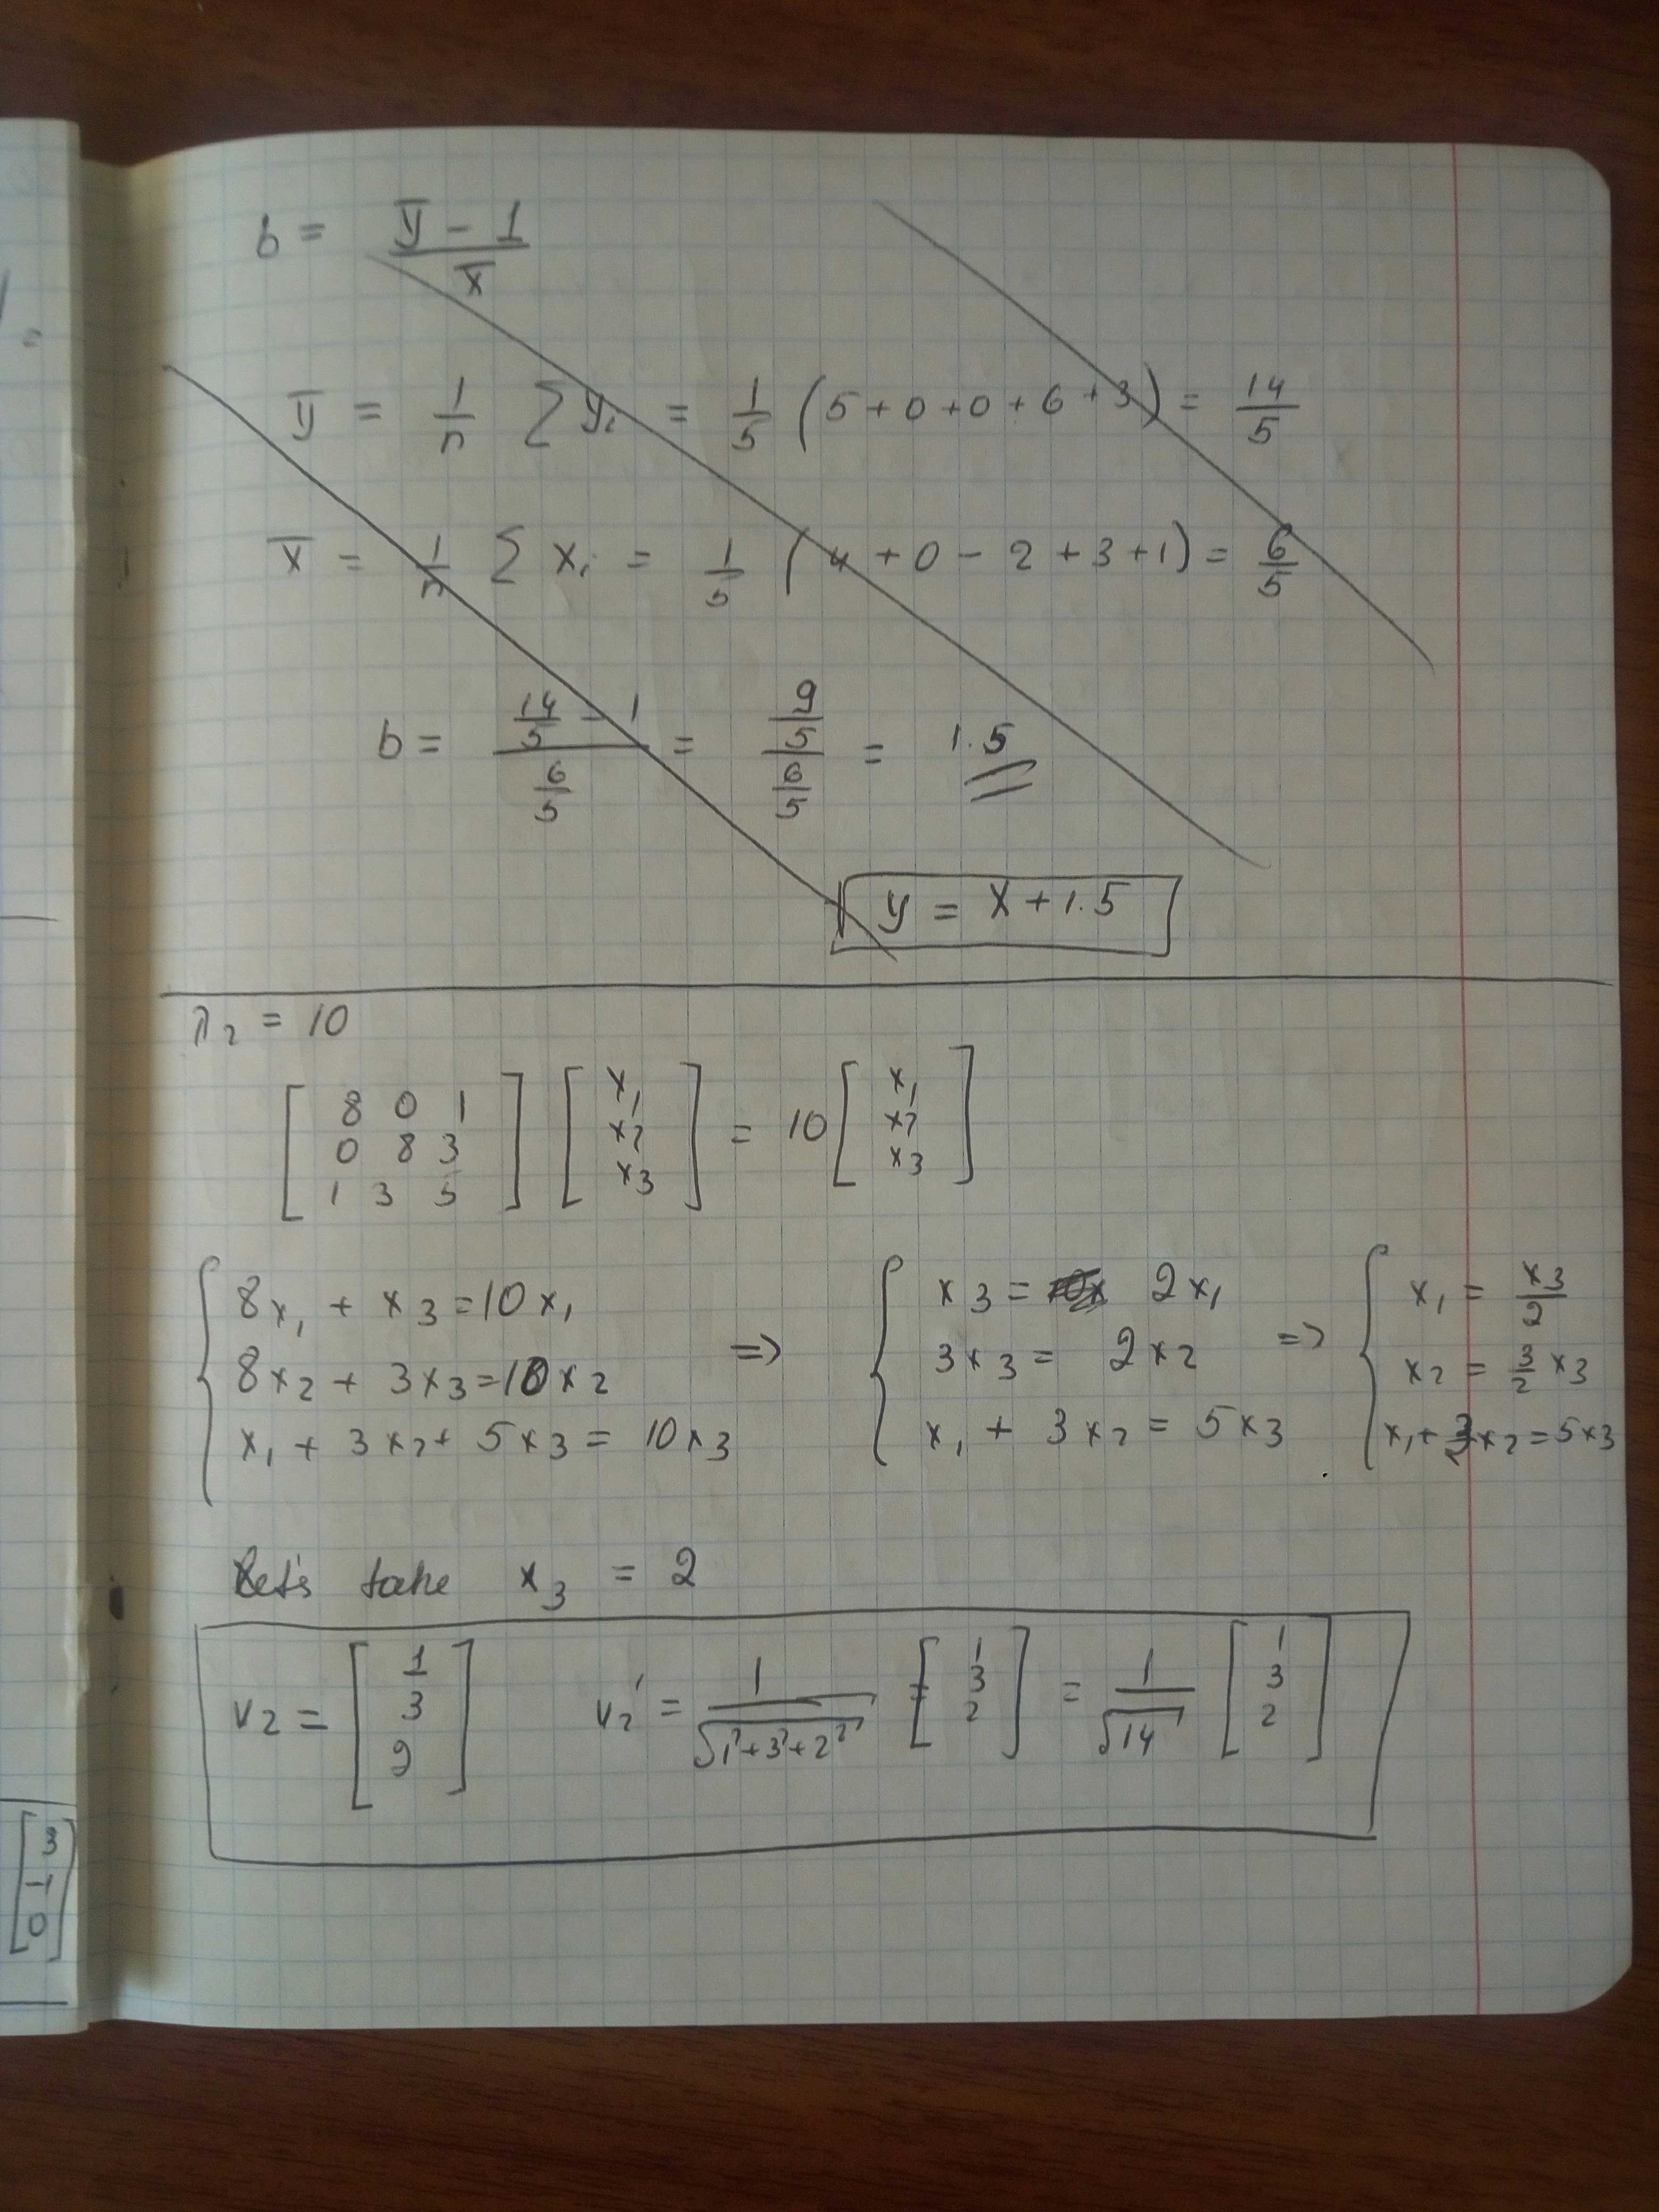 b = (ȳ - 1) / x̄
ȳ = 1/n Σ yᵢ = 1/5 (5 + 0 + 0 + 6 + 3) = 14/5
x̄ = 1/n Σ xᵢ = 1/5 (4 + 0 - 2 + 3 + 1) = 6/5
b = (14/5 - 1) / (6/5) = (9/5) / (6/5) = 1.5
y = x + 1.5
λ₂ = 10
[8 0 1; 0 8 3; 1 3 5] [x₁; x₂; x₃] = 10 [x₁; x₂; x₃]
{ 8x₁ + x₃ = 10x₁ => { x₃ = 2x₁ => { x₁ = x₃/2
8x₂ + 3x₃ = 10x₂ 3x₃ = 2x₂ x₂ = 3/2 x₃
x₁ + 3x₂ + 5x₃ = 10x₃ x₁ + 3x₂ = 5x₃ x₁ + 3x₂ = 5x₃
Let's take x₃ = 2
v₂ = [1; 3; 2] v₂' = 1/√(1² + 3² + 2²) = [1; 3; 2] = 1/√14 [1; 3; 2]
=
[3; -1; 0]